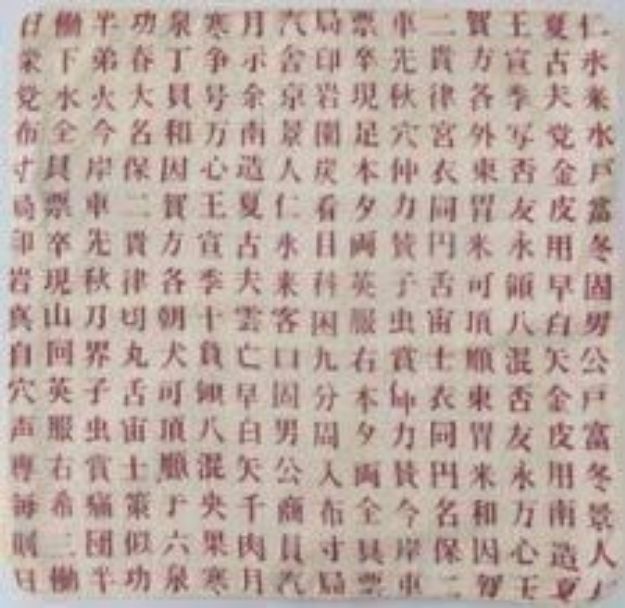 日働半功泉寒月汽局票車二賀王夏仁
下弟春丁争示舎印卒先貴方宣古氷
党水火大貝号余京岩現秋律各季夫来
布全今名和万南景囲足穴宮外写党水
寸具岸保因心造人炭本仲衣東否金戸
局票車二賀王夏仁看夕力同胃友皮富
印卒先貴方宣古氷目両賛円米永用冬
岩現秋律各季夫来科英子舌可領早固
真山刀切朝十雲客困服虫宙頂八白男
自回界丸犬負亡口九右賞士順混矢公
穴英子舌可領早固分本仲衣東否金戸
声服虫宙頂八白男周夕力同胃友皮富
専右賞士順混矢公入両賛円米永用冬
毎希痛策央千商布全今名和万南景
二団似六果肉員寸具岸保因心造人
日働半功泉寒月汽局票車二賀王夏仁